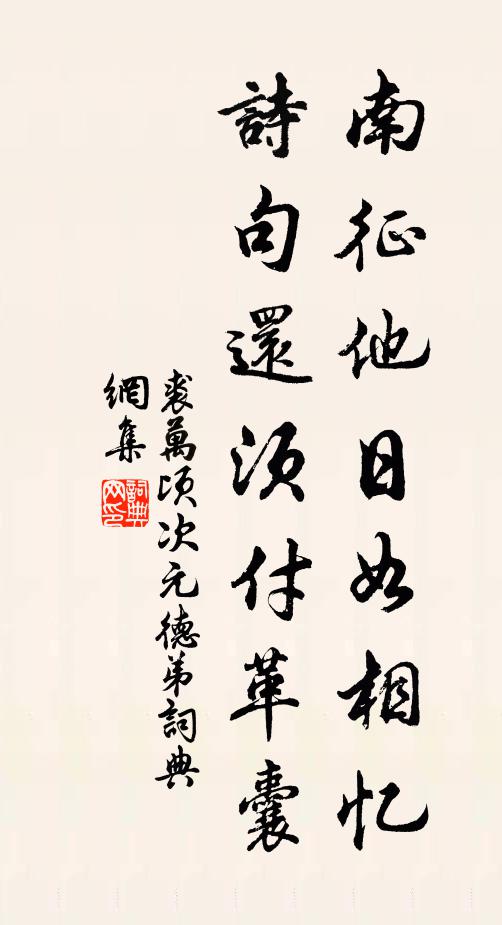 南征他日如相忆
詩句還須付革囊
裘萬頃次元德弟詞典
網集
詞典網印